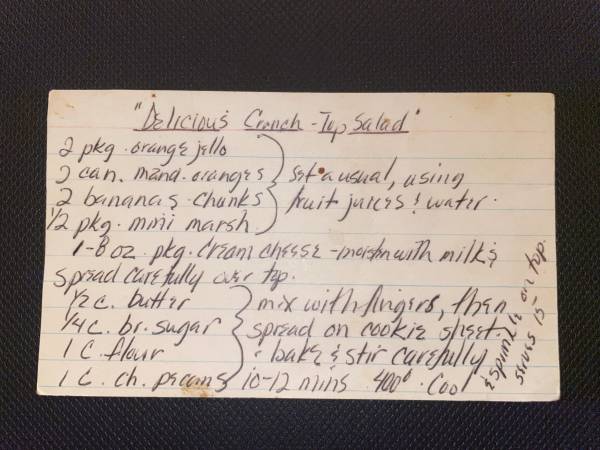 "Delicious Crunch-Top Salad"
2 pkg. orange jello
2 can. mand. oranges } Set a usual, using
2 bananas - chunks fruit juices & water.
1/2 pkg. mini marsh.
1-8 oz. pkg. cream cheese - moisten with milk &
spread carefully over top.
1/2 c. butter } mix with fingers, then
1/4 c. br. sugar spread on cookie sheet.
1 c. flour bake & stir carefully
1 c. ch. pecans 10-12 mins 400° . Cool
& sprinkle on top.
serves 15-